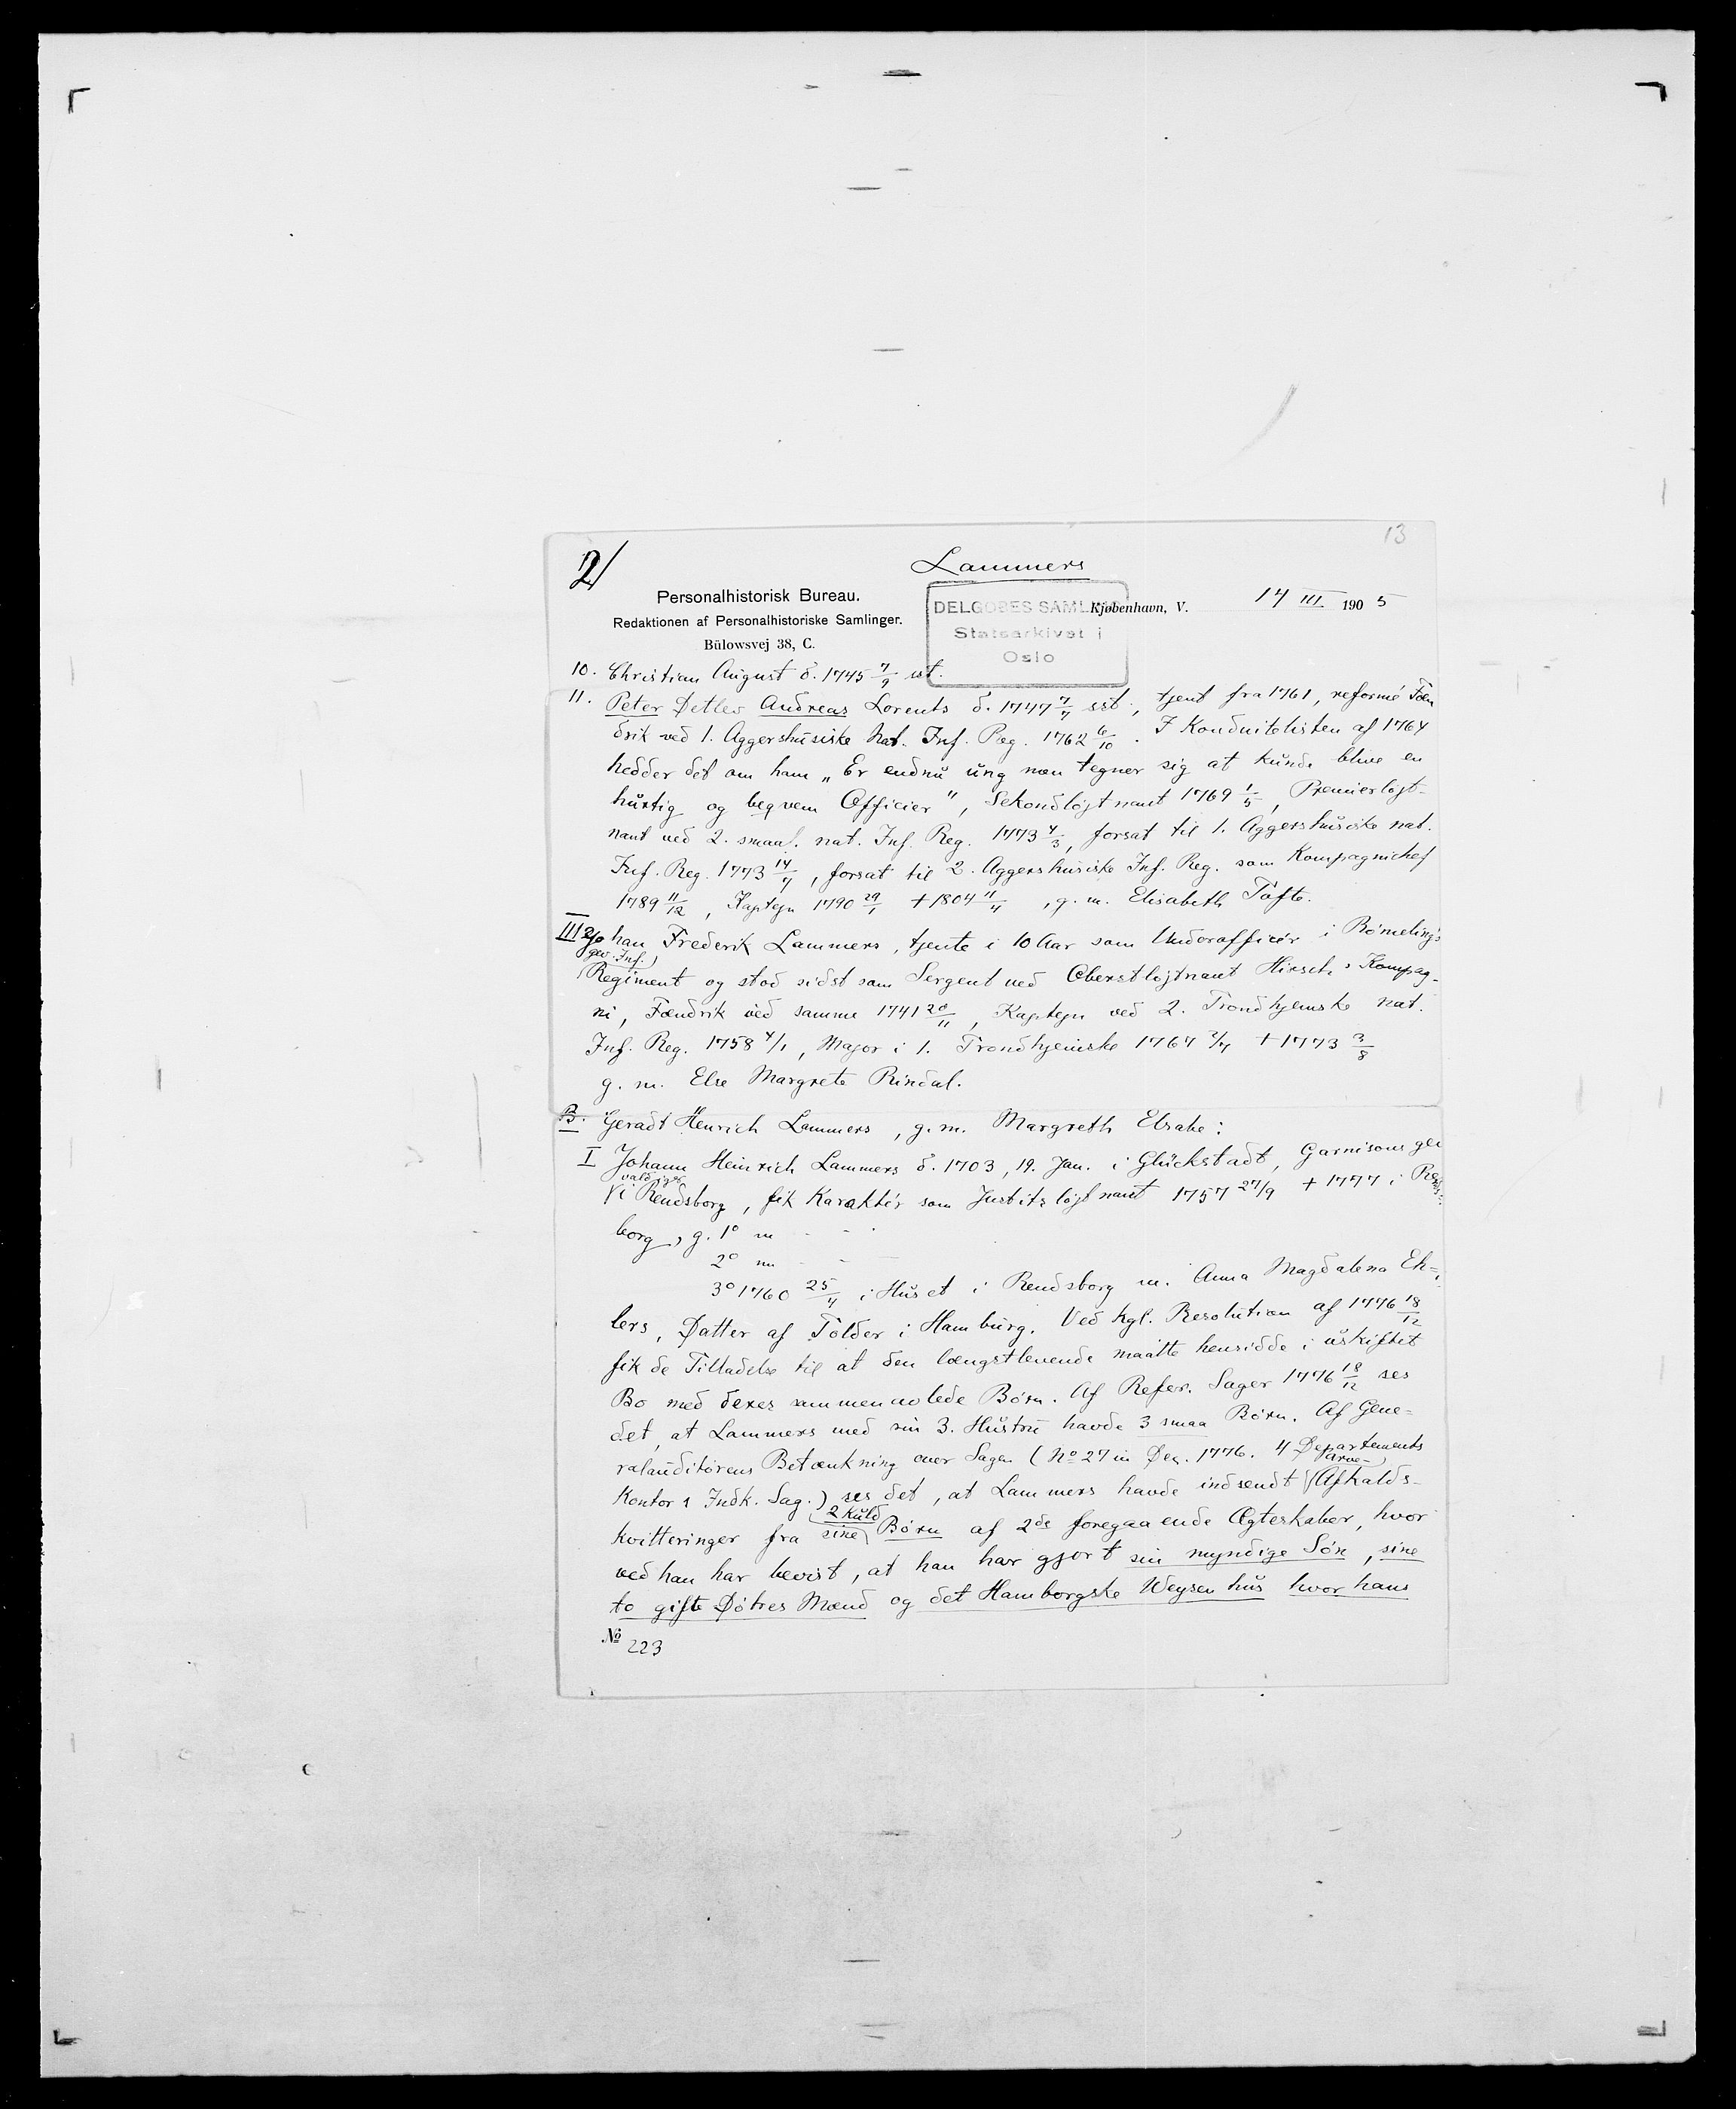 13
2/
Lammers
Personalhistorisk Bureau.
Redaktionen af Personalhistoriske Samlinger.
Bülowsvej 38, C.
DELGOBES SAMLING
Statsarkivet i
Oslo
Kjøbenhavn, V. 14 III 1905
10. Christian August d. 1745 7/9 sst.
11. Peter Detlev Andreas Lorents d. 1747 7/7 sst., tjent fra 1761, reformé Fæn
drik ved 1. Aggershusiske Nat. Inf. Reg. 1762 6/10. I Konduitelisten af 1764
hedder det om ham „Er endnu ung men tegner sig at kunde blive en
hurtig og beqvem Officier", Sekondløjtnant 1769 1/5, Premierløjt-
nant ved 2. smaal. nat. Inf. Reg. 1773 4/3, forsat til 1. Aggershusiske nat.
Inf. Reg. 1773 14/7, forsat til 2. Aggershusiske Inf. Reg. som Kompagnichef
1789 11/12, Kaptejn 1790 29/1 + 1804 11/4, g. m. Elisabeth Tofte.
III Johan Frederik Lammers, tjente i 10 Aar som Underofficér i Römelings
gev. Inf.
Regiment og stod sidst som Sergent ved Oberstløjtnant Hirsch's Kompag-
ni, Fændrik ved samme 1741 20/11, Kaptejn ved 2. Trondhjemske nat.
Inf. Reg. 1758 4/1, Major i 1. Trondhjemske 1767 2/7 + 1773 3/8
g. m. Else Margrete Rindal.
B. Geradt Henrich Lammers, g. m. Margreth Elsabe:
I Johann Heinrich Lammers d. 1703, 19. Jan. i Glückstadt, Garnisons ge
valdiger
i Rendsborg, fik Karaktér som Justitsløjtnant 1757 27/9 + 1777 i Rends-
borg, g. 1° m - -
2° m - -
3° 1760 25/4 i Huset i Rendsborg m. Anna Magdalena Eh-
lers, Datter af Tolder i Hamburg. Ved kgl. Resolution af 1776 18/12
fik de Tilladelse til at den længstlevende maatte hensidde i uskiftet
Bo med deres sammenavlede Børn. Af Refer. Sager 1776 18/12 ses
det, at Lammers med sin 3. Hustru havde 3 smaa Børn. Af Gene-
ralauditørens Betænkning over Sagen (No 27 in Dec. 1776. 4 Departements
Arve-
Kontor s Indk. Sag.) ses det, at Lammers havde indsendt Afkalds-
2 Kuld
kvitteringer fra sine Børn af 2de foregaaende Ægteskaber, hvor
ved han har bevist, at han har gjort sin myndige Søn, sine
to gifte Døtres Mænd og det Hamborgske Weysenhus hvor hans
No 223